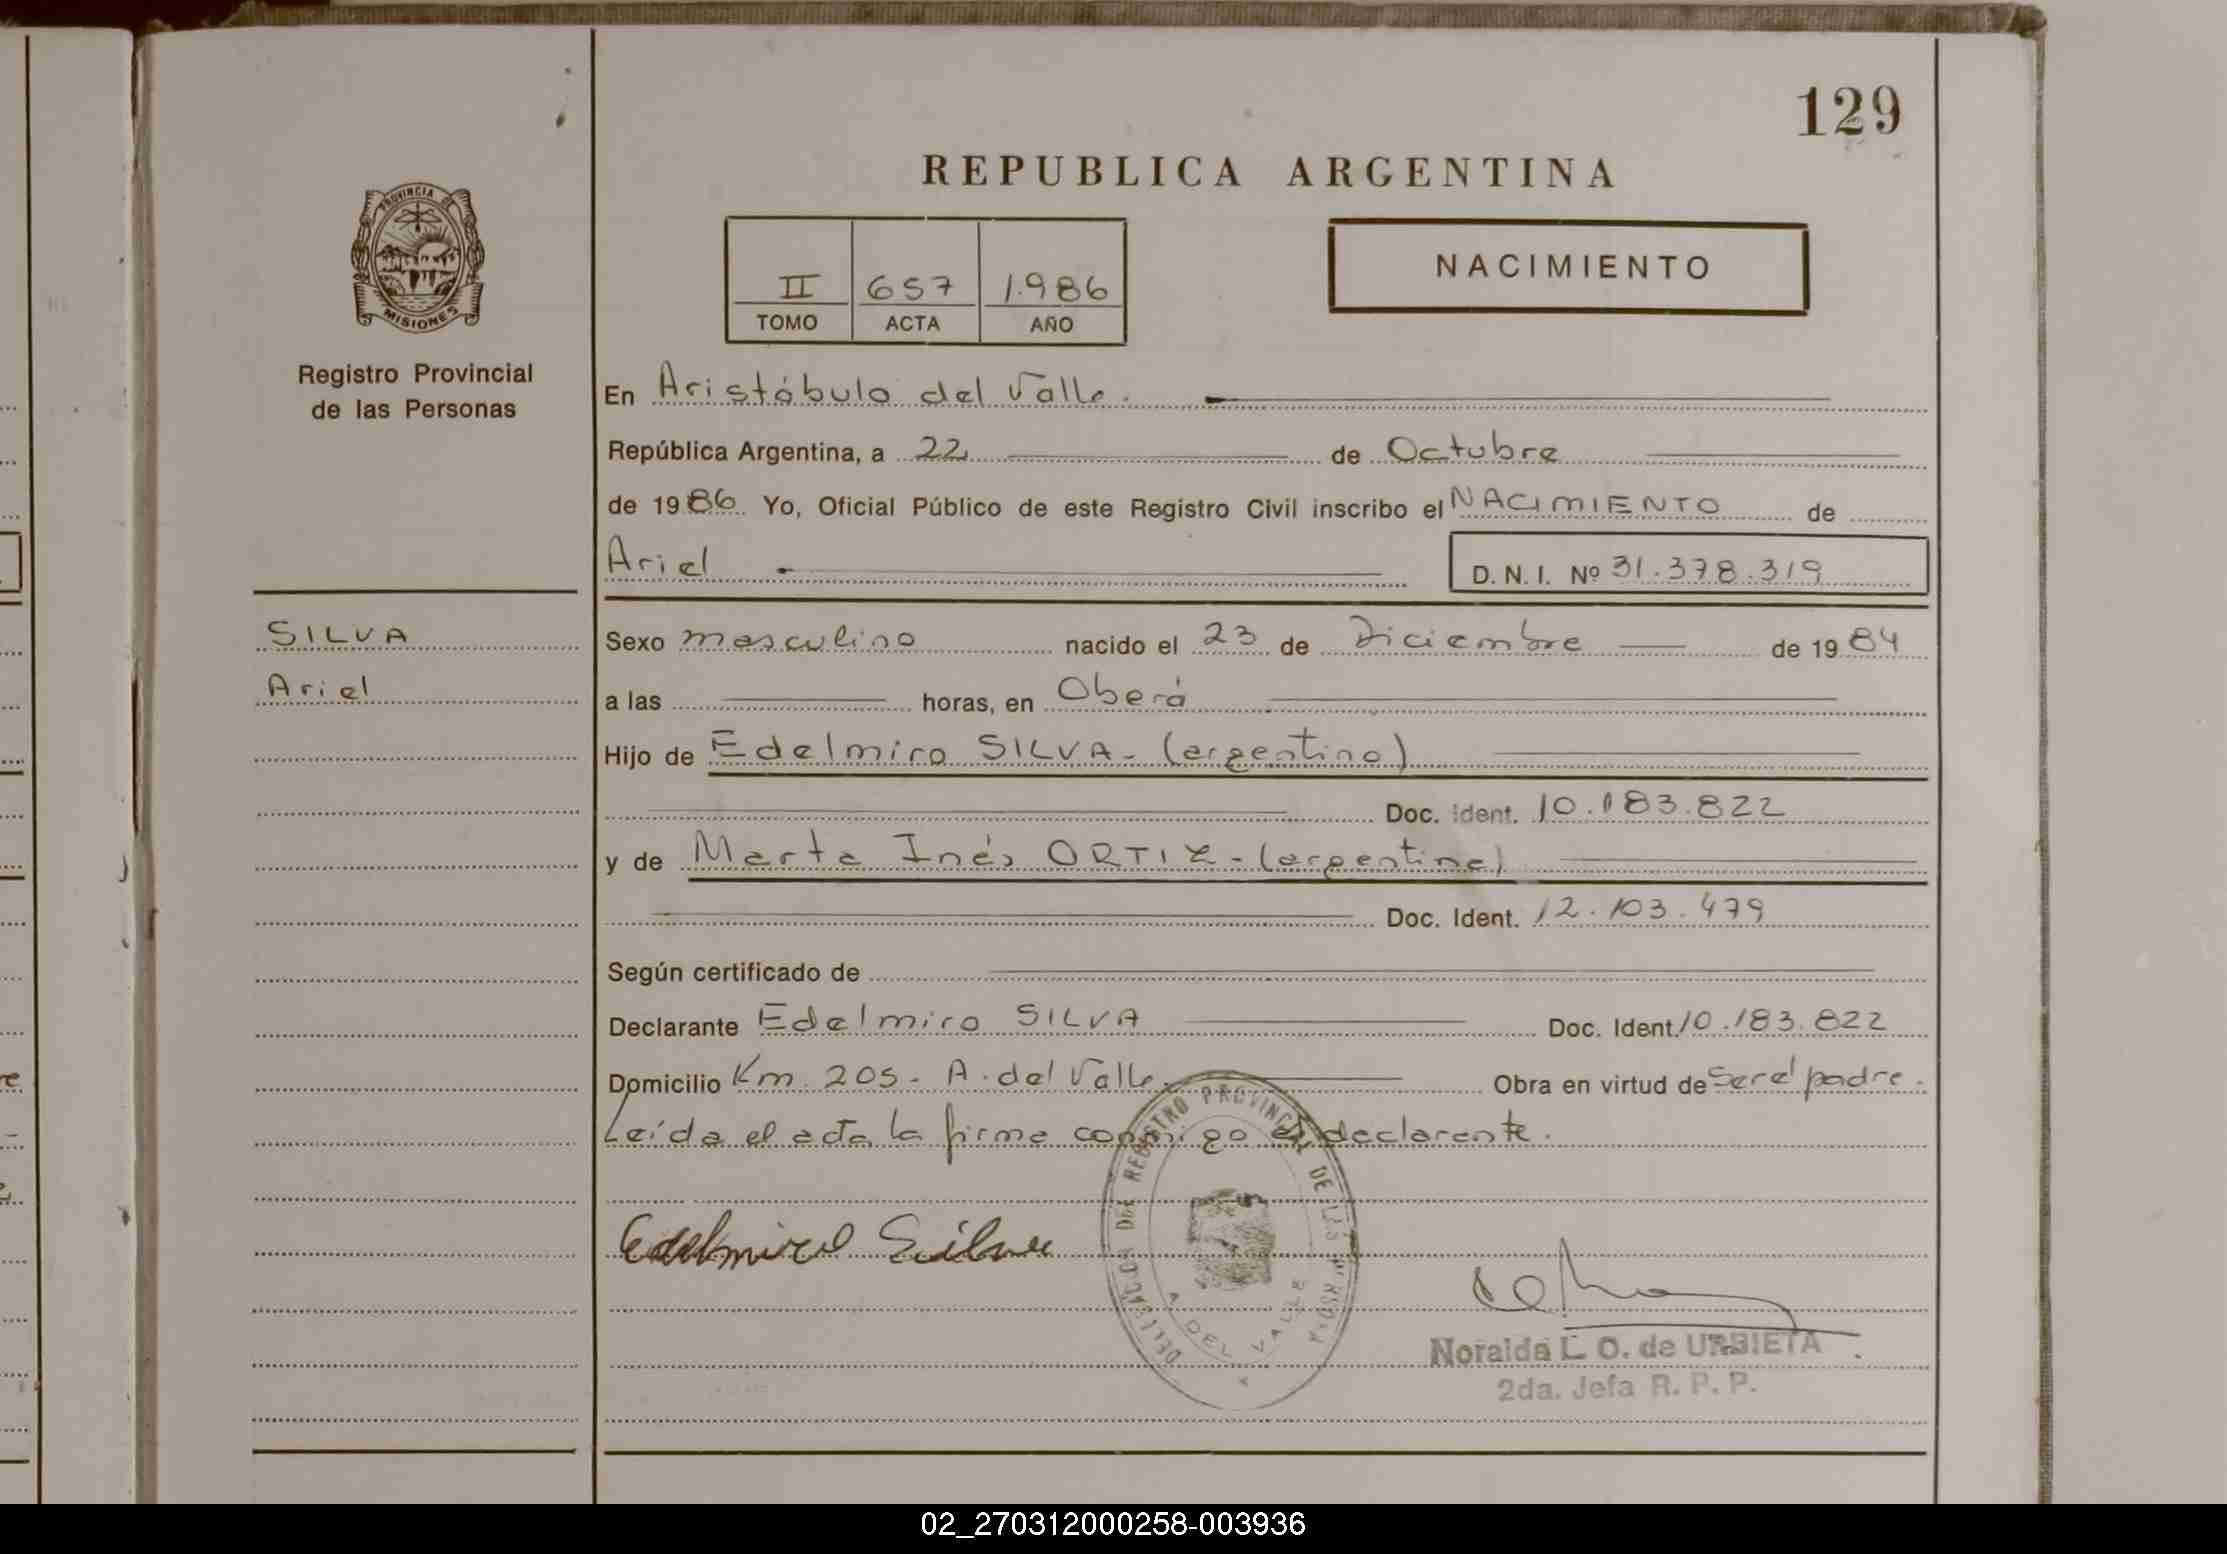 129
REPUBLICA ARGENTINA
PROVINCIA DE
MISIONES
II 657 1.986
TOMO ACTA AÑO
NACIMIENTO
Registro Provincial
de las Personas
En Aristóbulo del Valle.
República Argentina, a 22 de Octubre
de 1986. Yo, Oficial Público de este Registro Civil inscribo el NACIMIENTO de
Ariel D. N. I. Nº 31.378.319
SILVA
Ariel
Sexo masculino nacido el 23 de Diciembre de 1984
a las horas, en Oberá
Hijo de Edelmiro SILVA - (argentino)
Doc. Ident. 10.183.822
y de Marta Inés ORTIZ - (argentina)
Doc. Ident. 12.103.479
Según certificado de
Declarante Edelmiro SILVA Doc. Ident. 10.183.822
Domicilio Km. 205 - A. del Valle. Obra en virtud de ser el padre.
Leída el acta la firma conmigo el declarante.
Edelmiro Silva
DELEGACION DEL REGISTRO PROVINCIAL DE LAS PERSONAS
A. DEL VALLE
Noraida L. O. de URBIETA
2da. Jefa R. P. P.
02_270312000258-003936